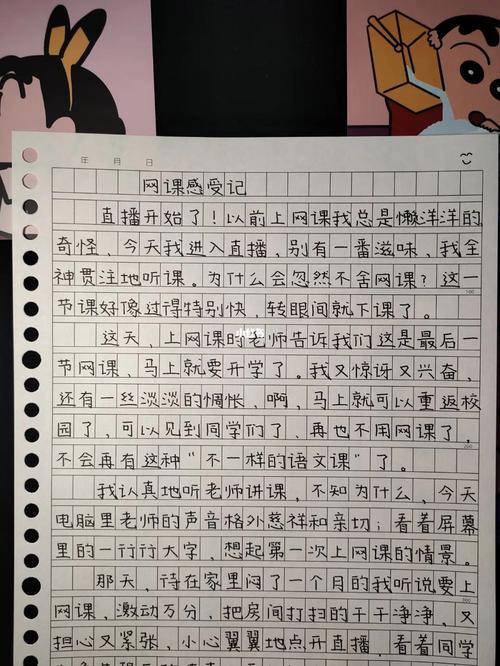 年 月 日
网课感受记
直播开始了！以前上网课我总是懒洋洋的
奇怪，今天我进入直播，别有一番滋味，我全
神贯注地听课。为什么会忽然不舍网课？这一
100
节课好像过得特别快，转眼间就下课了。
这天，上网课时老师告诉我们这是最后一
节网课，马上就要开学了。我又惊讶又兴奋，
还有一丝淡淡的惆怅，啊，马上就可以重返校
园了，可以见到同学们了，再也不用网课了，
200
不会再有这种“不一样的语文课”了。
我认真地听老师讲课，不知为什么，今天
电脑里老师的声音格外慈祥和亲切；看着屏幕
里的一行行大字，想起第一次上网课的情景。
那天，待在家里闷了一个月的我听说要上
300
网课，激动万分，把房间打扫的干干净净，又
担心又紧张，小心翼翼地点开直播，看着同学
小红书